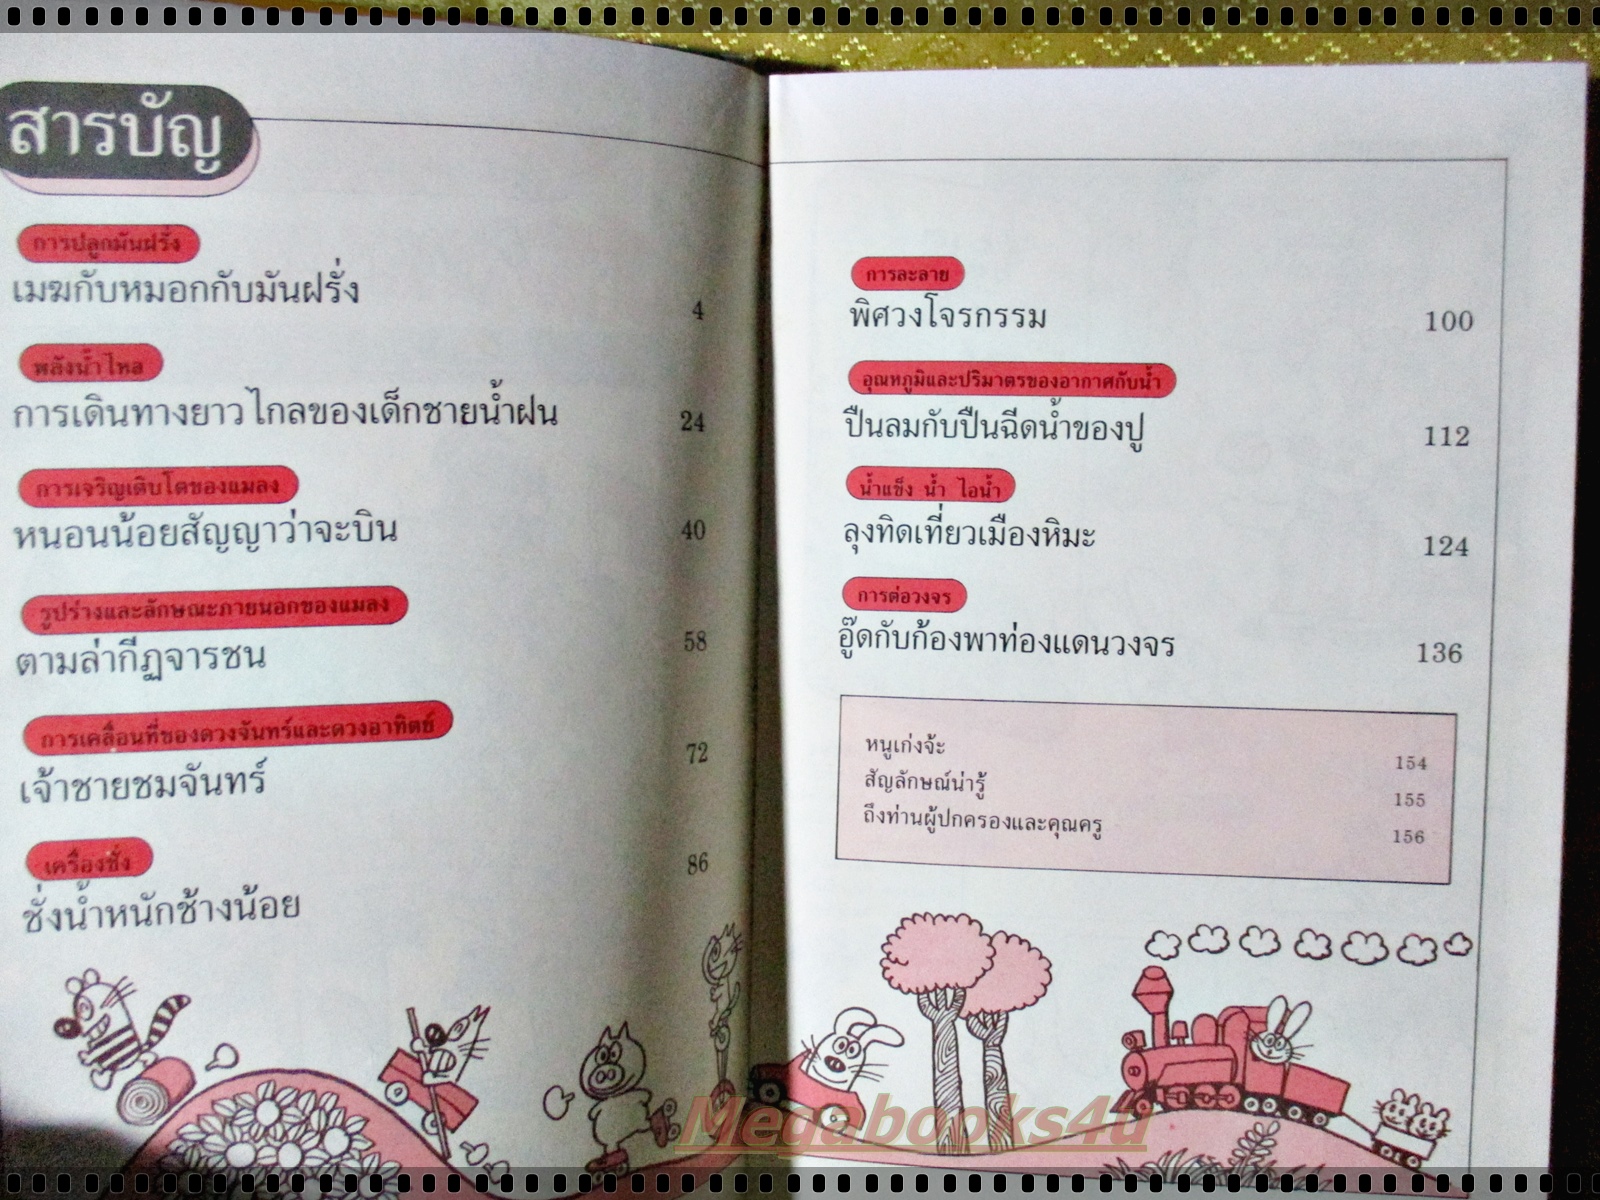 สารบัญ
การปลูกมันฝรั่ง
เมฆกับหมอกกับมันฝรั่ง 4
พลังน้ำไหล
การเดินทางยาวไกลของเด็กชายน้ำฝน 24
การเจริญเติบโตของแมลง
หนอนน้อยสัญญาว่าจะบิน 40
รูปร่างและลักษณะภายนอกของแมลง
ตามล่ากีฏจารชน 58
การเคลื่อนที่ของดวงจันทร์และดวงอาทิตย์
เจ้าชายชมจันทร์ 72
เครื่องชั่ง
ชั่งน้ำหนักช้างน้อย 86
การละลาย
พิศวงโจรกรรม 100
อุณหภูมิและปริมาตรของอากาศกับน้ำ
ปืนลมกับปืนฉีดน้ำของปู 112
น้ำแข็ง น้ำ ไอน้ำ
ลุงทิดเที่ยวเมืองหิมะ 124
การต่อวงจร
อู๊ดกับก้องพาท่องแดนวงจร 136
หนูเก่งจ้ะ 154
สัญลักษณ์น่ารู้ 155
ถึงท่านผู้ปกครองและคุณครู 156
Megabooks4u